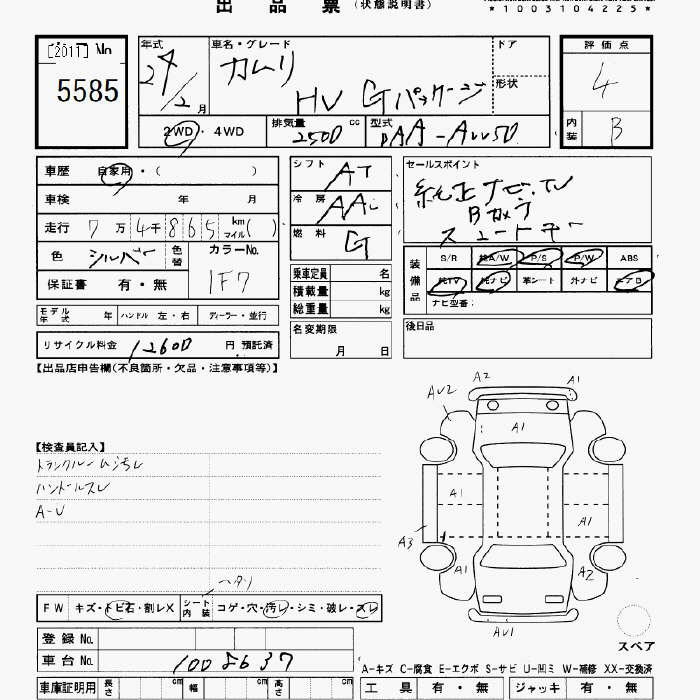 出 品 票 (状態説明書)
*1003104225*
[2011] No
5585
年式 27/2月
車名・グレード カムリ
HV Gパッケージ
ドア
形状
評価点
4
内装 B
2WD・4WD 排気量 2500 cc 型式 DAA-AVV50
車歴 自家用・( )
車検 年 月
走行 7万4千865 km マイル( )
色 シルバー 色替 カラーNo. 1F7
保証書 有・無
シフト AT
冷房 AAC
燃料 G
乗車定員 名
積載量 kg
総重量 kg
名変期限
月 日
セールスポイント
純正ナビ.TV
Bカメラ
スマートキー
装備品
S/R 純A/W P/S P/W ABS
純TV 純ナビ 革シート 外ナビ エアB
ナビ型番:
後日品
モデル年式 年 ハンドル 左・右 ディーラー・並行
リサイクル料金 12600 円 預託済
【出品店申告欄(不良箇所・欠品・注意事項等)】
【検査員記入】
トランクルーム汚レ
ハンドルスレ
A-U
ヘタリ
FW キズ・トビ石・割レX シート内装 コゲ・穴・汚レ・シミ・破レ・スレ
登録No.
車台No. 1008637
車庫証明用 長さ cm 幅 cm 高さ cm
AU2 A2 A1
A1
A1
A1
A3
A1 A2
AU1
スペア
A-キズ C-腐食 E-エクボ S-サビ U-凹ミ W-補修 XX-交換済
工具 有・無 ジャッキ 有・無